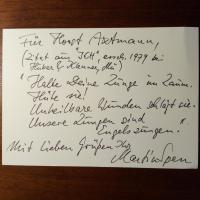 Für Horst Axtmann,
(Zitat aus "ICH", ersch. 1979 bei
Hüber & Klenner, Mü)
"Halte Deine Zunge im Zaum.
Hüte sie!
Unheilbare Wunden schlägt sie.
Unsere Zungen sind
Engelszungen."
Mit lieben Grüßen Ihr
Martin Sperr